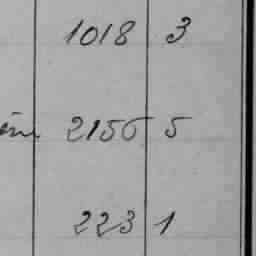 1018 3
2156 5
223 1